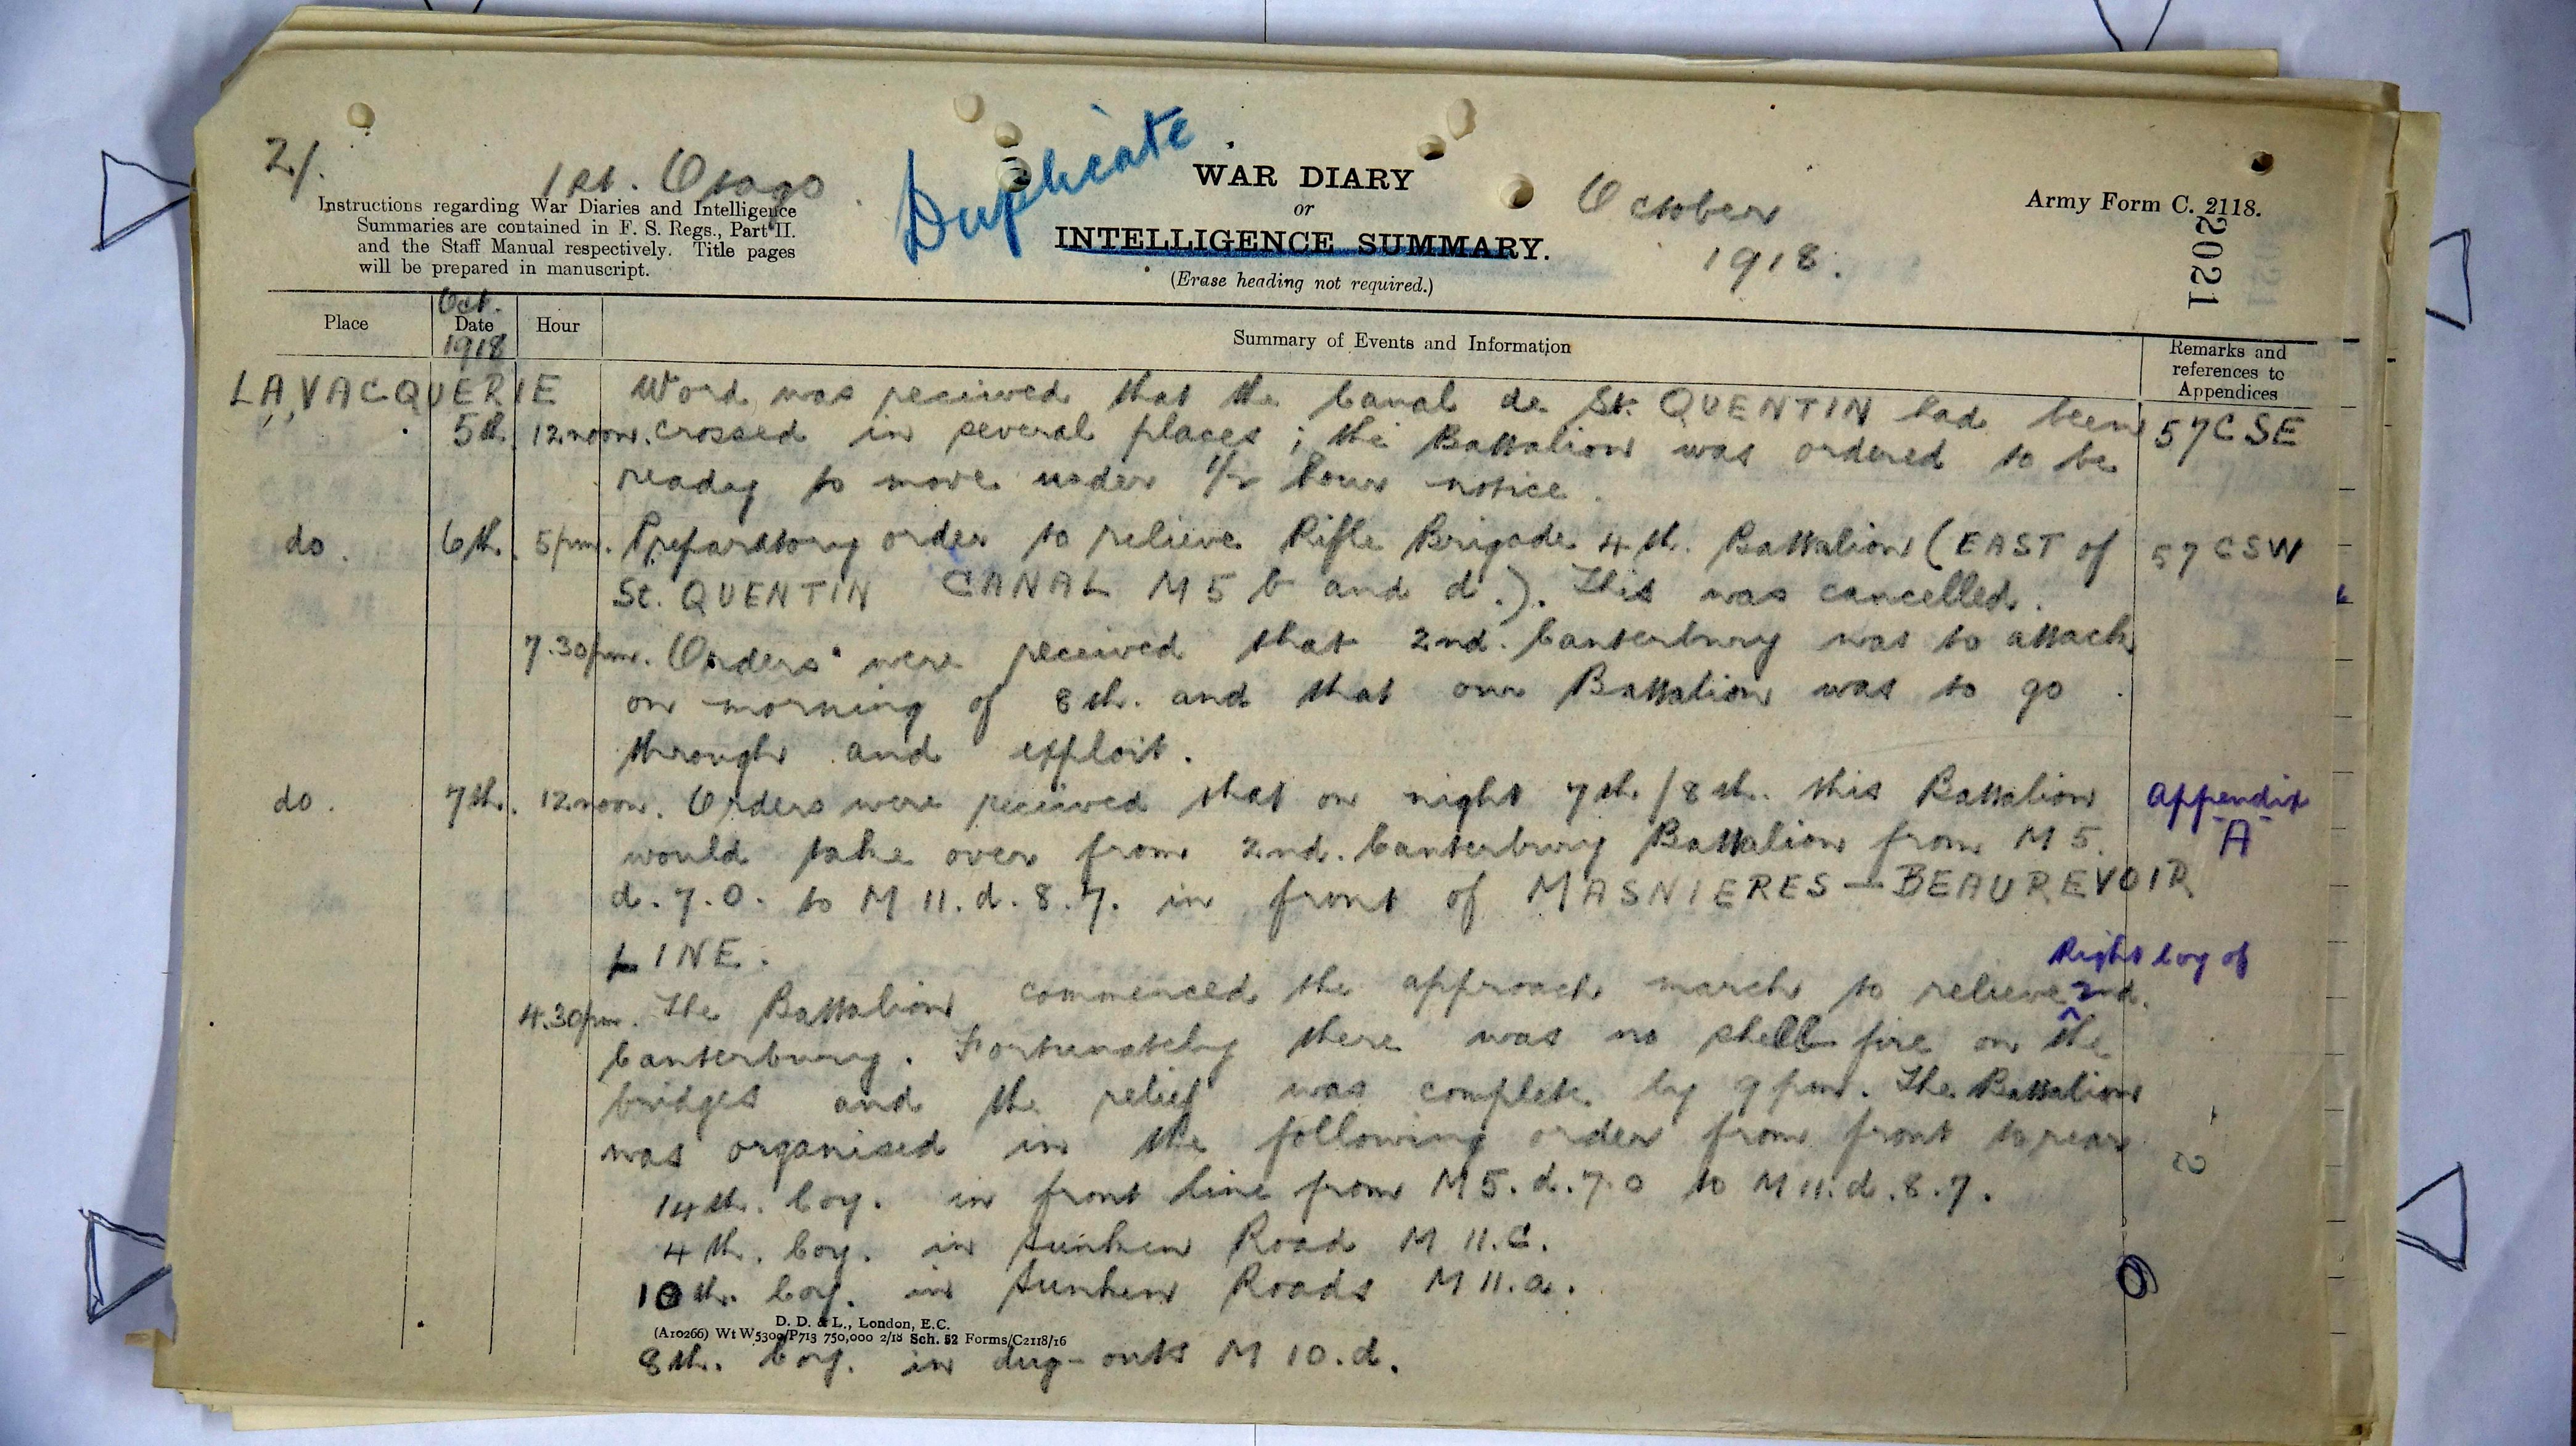 2/.
1st. Otago
Duplicate
WAR DIARY
or
INTELLIGENCE SUMMARY.
(Erase heading not required.)
October
1918.
Army Form C. 2118.
2021
Instructions regarding War Diaries and Intelligence
Summaries are contained in F. S. Regs., Part II.
and the Staff Manual respectively. Title pages
will be prepared in manuscript.
Place
Oct.
Date
1918
Hour
Summary of Events and Information
Remarks and
references to
Appendices
LA VACQUERIE Word was received that the Canal de St. QUENTIN had been
5th. 12 noon. crossed in several places; the Battalion was ordered to be 57C SE
ready to move under 1/2 hour notice.
do. 6th. 5pm. Preparatory order to relieve Rifle Brigade 4th. Battalion (EAST of 57 C SW
St. QUENTIN CANAL M 5 b and d.). This was cancelled.
7.30pm. Orders were received that 2nd. Canterbury was to attack
on morning of 8th. and that our Battalion was to go
through and exploit.
do. 7th. 12 noon. Orders were received that on night 7th/8th. this Battalion Appendix
would take over from 2nd. Canterbury Battalion from M 5. A
d.7.0. to M 11.d.8.7. in front of MASNIERES — BEAUREVOIR
LINE.
Right Coy of
4.30pm. The Battalion commenced the approach march to relieve ^ 2nd.
Canterbury. Fortunately there was no shell fire on the
bridges and the relief was complete by 9 pm. The Battalion
was organised in the following order from front to rear
14th. Coy. in front line from M 5.d.7.0 to M 11.d.8.7.
4th. Coy. in Sunken Road M 11.C.
10th. Coy. in Sunken Roads M 11.a.
D. D. & L., London, E.C.
(A10266) Wt W5300/P713 750,000 2/18 Sch. 52 Forms/C2118/16
8th. Coy. in dug-outs M 10.d.